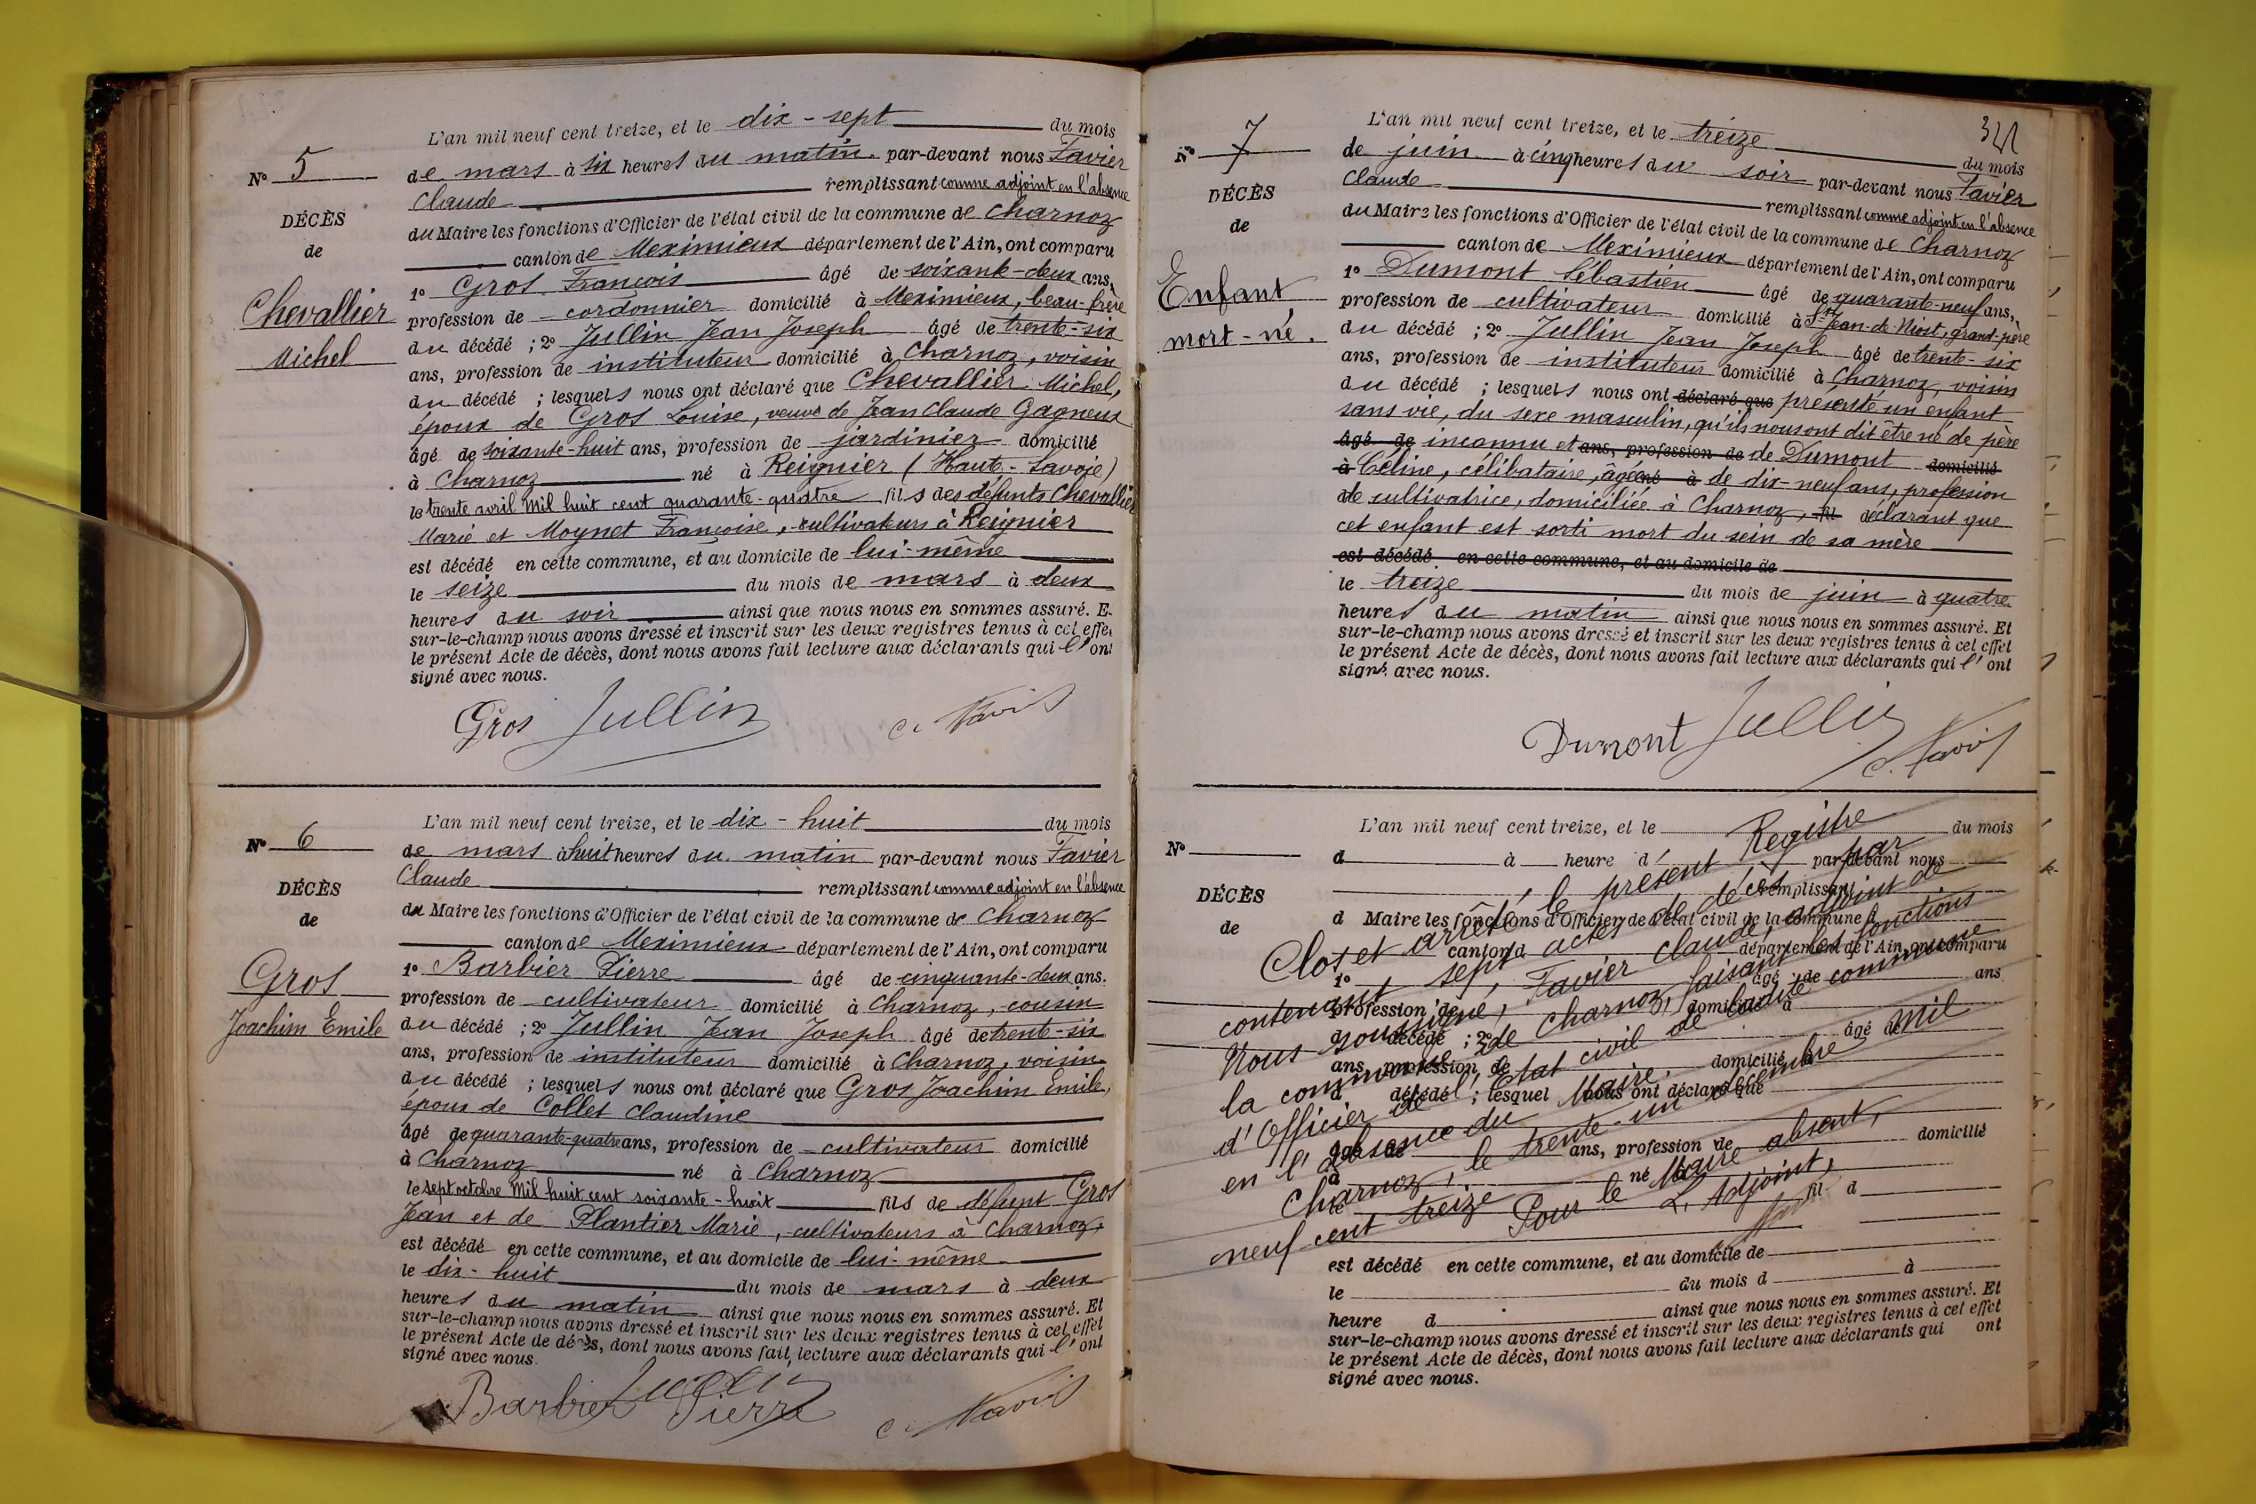 L'an mil neuf cent treize, et le dix-sept du mois
de mars à six heures du matin par-devant nous Favier
Claude remplissant comme adjoint en l'absence
du Maire les fonctions d'Officier de l'état civil de la commune de Charnoz
canton de Meximieux département de l'Ain, ont comparu
1º Gros François âgé de soixante-deux ans,
profession de cordonnier domicilié à Meximieux, beau-frère
du décédé ; 2º Jullin Jean Joseph âgé de trente-six
ans, profession de instituteur domicilié à Charnoz, voisin
du décédé ; lesquels nous ont déclaré que Chevallier Michel,
époux de Gros Louise, veuve de Jean Claude Gagneux
âgé de soixante-huit ans, profession de jardinier domicilié
à Charnoz né à Reignier (Haute-Savoie)
le trente avril mil huit cent quarante-quatre fils des défunts Chevallier
Marie et Moynet Françoise, cultivateurs à Reignier
est décédé en cette commune, et au domicile de lui-même
le seize du mois de mars à deux
heures du soir ainsi que nous nous en sommes assuré. E.
sur-le-champ nous avons dressé et inscrit sur les deux registres tenus à cet effe
le présent Acte de décès, dont nous avons fait lecture aux déclarants qui l'ont
signé avec nous.
Nº 5
DÉCÈS
de
Chevallier
Michel
Gros Jullin C. Favier
L'an mil neuf cent treize, et le dix-huit du mois
de mars à huit heures du matin par-devant nous Favier
Claude remplissant comme adjoint en l'absence
du Maire les fonctions d'Officier de l'état civil de la commune de Charnoz
canton de Meximieux département de l'Ain, ont comparu
1º Barbier Pierre âgé de cinquante-deux ans.
profession de cultivateur domicilié à Charnoz, cousin
du décédé ; 2º Jullin Jean Joseph âgé de trente-six
ans, profession de instituteur domicilié à Charnoz, voisin
du décédé ; lesquels nous ont déclaré que Gros Joachim Emile,
époux de Collet Claudine
âgé de quarante-quatre ans, profession de cultivateur domicilié
à Charnoz né à Charnoz
le sept octobre mil huit cent soixante-huit fils de défunt Gros
Jean et de Plantier Marie, cultivateurs à Charnoz,
est décédé en cette commune, et au domicile de lui-même
le dix-huit du mois de mars à deux
heures du matin ainsi que nous nous en sommes assuré. Et
sur-le-champ nous avons dressé et inscrit sur les deux registres tenus à cet effet
le présent Acte de décès, dont nous avons fait lecture aux déclarants qui l'ont
signé avec nous.
Nº 6
DÉCÈS
de
Gros
Joachim Emile
Barbier Pierre Jullin C. Favier
L'an mil neuf cent treize, et le treize du mois
de juin à cinq heures du soir par-devant nous Favier
Claude remplissant comme adjoint en l'absence
du Maire les fonctions d'Officier de l'état civil de la commune de Charnoz
canton de Meximieux département de l'Ain, ont comparu
1º Dumont Sébastien âgé de quarante-neuf ans,
profession de cultivateur domicilié à St Jean-de-Niost, grand-père
du décédé ; 2º Jullin Jean Joseph âgé de trente-six
ans, profession de instituteur domicilié à Charnoz, voisin
du décédé ; lesquels nous ont déclaré que présenté un enfant
sans vie, du sexe masculin, qu'ils nous ont dit être né de père
âgé de inconnu et ans, profession de de Dumont domicilié
à Céline, célibataire, âgée né à de dix-neuf ans, profession
de cultivatrice, domiciliée à Charnoz, fil déclarant que
cet enfant est sorti mort du sein de sa mère
est décédé en cette commune, et au domicile de
le treize du mois de juin à quatre
heures du matin ainsi que nous nous en sommes assuré. Et
sur-le-champ nous avons dressé et inscrit sur les deux registres tenus à cet effet
le présent Acte de décès, dont nous avons fait lecture aux déclarants qui l'ont
signé avec nous.
Nº 7
DÉCÈS
de
Enfant
mort-né.
Dumont Jullin C. Favier
L'an mil neuf cent treize, et le du mois
d à heure d par-devant nous
remplissant
d Maire les fonctions d'Officier de l'état civil de la commune d
canton d département de l'Ain, ont comparu
1º âgé de ans
profession de domicilié à
d décédé ; 2º âgé de
ans, profession de domicilié à
d décédé ; lesquel nous ont déclaré que
âgé de ans, profession de domicilié
à né à
le fil d
est décédé en cette commune, et au domicile de
le du mois d à
heure d ainsi que nous nous en sommes assuré. Et
sur-le-champ nous avons dressé et inscrit sur les deux registres tenus à cet effet
le présent Acte de décès, dont nous avons fait lecture aux déclarants qui ont
signé avec nous.
Nº
DÉCÈS
de
Clos et arrêté, le présent Registre
contenant sept actes de décès par
Nous soussigné, Favier Claude, adjoint de
la commune de Charnoz, faisant les fonctions
d'Officier de l'Etat civil de ladite commune
en l'absence du Maire.
Charnoz, le trente-un décembre mil
neuf cent treize
Pour le Maire absent,
L'Adjoint,
C. Favier